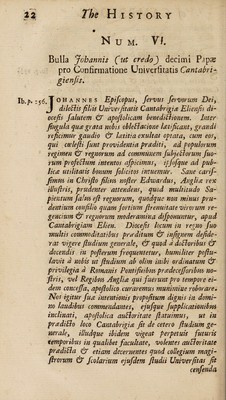 22 The HISTORY
NUM. VI.
Bulla Johannis (ut credo) decimi Papæ
pro Confirmatione Universitatis Cantabri-
giensis.
Ib. p. 156. JOHANNES Episcopus, servus servorum Dei,
dilectis filiis Universitatis Cantabrigiæ Eliensis di-
ocesis salutem & apostolicam benedictionem. Inter
singula quæ grata nobis oblectatione lætificant, grandi
reficimur gaudio & lætitia exultat optata, cum eos,
qui cœlesti sunt providentia præditi, ad populorum
regimen & regnorum ad communem subjectorum suo-
rum profectum intentos aspicimus, ipsosque ad pub-
lica utilitatis bonum solicitos intuemur. Sane caris-
simus in Christo filius noster Edwardus, Angliæ rex
illustris, prudenter attendens, quod multitudo Sa-
pientum salus est regnorum, quodque non minus pru-
dentium consilio quam fortium strenuitate virorum re-
gencium & regnorum moderamina disponuntur, apud
Cantabrigiam Elien. Diocesis locum in regno suo
multis commoditatibus præditum & insignem deside-
rat vigere studium generale, & quod a doctoribus &
docendis in posterum frequentetur, humiliter postu-
lavit a nobis ut studium ab olim inibi ordinatum &
privilegia à Romanis Pontificibus prædecessoribus no-
stris, vel Regibus Angliæ qui fuerunt pro tempore ei-
dem concessa, apostolico curaremus munimine roborare.
Nos igitur suæ intentionis propositum dignis in domi-
no laudibus commendantes, ejusque supplicationibus
inclinati, apostolica auctoritate statuimus, ut in
prædicto loco Cantabrigiæ sit de cetero studium ge-
nerale, illudque ibidem vigeat perpetuis futuris
temporibus in qualibet facultate, volentes auctoritate
prædicta & etiam decernentes quod collegium magi-
strorum & scolarium ejusdem studii Universitas sit
censenda